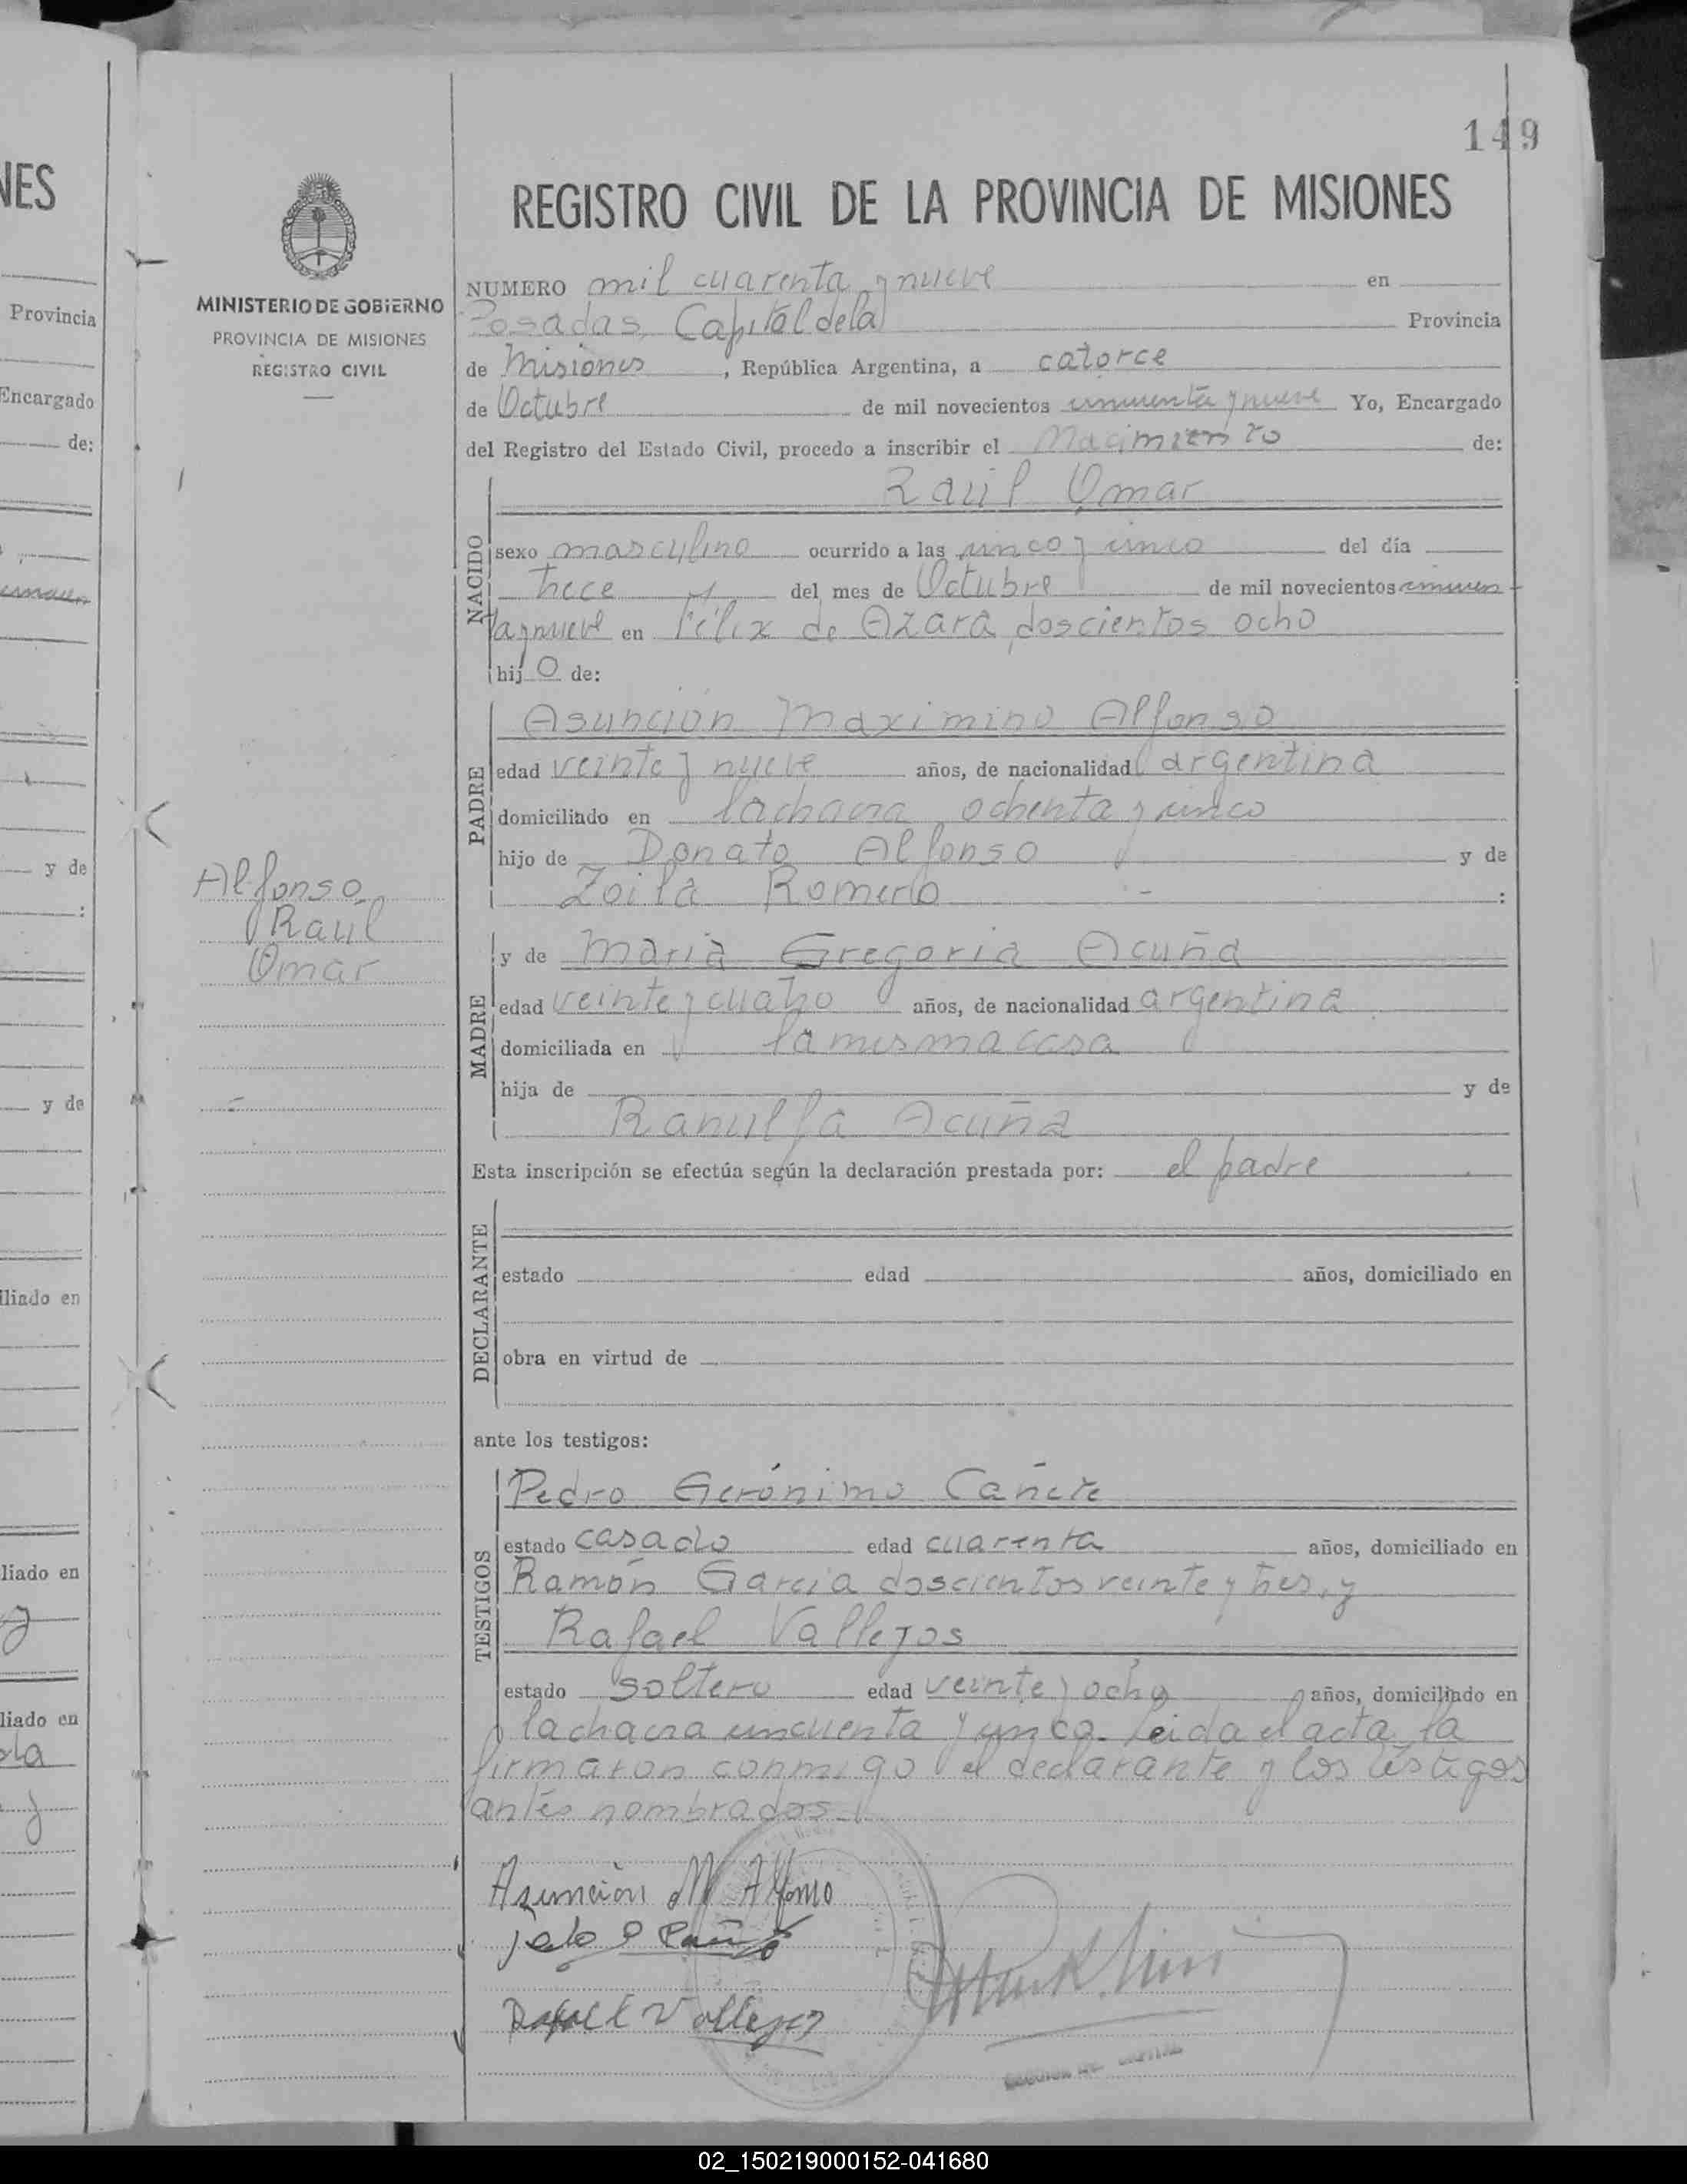 149
NES
REGISTRO CIVIL DE LA PROVINCIA DE MISIONES
MINISTERIO DE GOBIERNO
PROVINCIA DE MISIONES
REGISTRO CIVIL
Provincia
Encargado
de:
y de
:
y de
lliado en
liado en
y
liado en
y
NUMERO mil cuarenta y nueve en
Posadas, Capital de la Provincia
de Misiones, República Argentina, a catorce
de Octubre de mil novecientos cincuenta y nueve Yo, Encargado
del Registro del Estado Civil, procedo a inscribir el Nacimiento de:
NACIDO
Raúl Omar
sexo masculino ocurrido a las cinco y cinco del día
trece del mes de Octubre de mil novecientos cincuen-
ta y nueve en Félix de Azara doscientos ocho
hijo de:
PADRE
Asunción Maximino Alfonso
edad veinte y nueve años, de nacionalidad argentina
domiciliado en la chacra ochenta y cinco
hijo de Donato Alfonso y de
Zoila Romero :
Alfonso
Raúl
Omar
MADRE
y de María Gregoria Acuña
edad veinte y cuatro años, de nacionalidad argentina
domiciliada en la misma casa
hija de y de
Ranulfa Acuña
Esta inscripción se efectúa según la declaración prestada por: el padre
DECLARANTE
estado edad años, domiciliado en
obra en virtud de
ante los testigos:
TESTIGOS
Pedro Gerónimo Cañete
estado casado edad cuarenta años, domiciliado en
Ramón García doscientos veinte y tres, y
Rafael Vallejos
estado soltero edad veinte y ocho años, domiciliado en
la chacra cincuenta y cinco. Leida el acta la
firmaron conmigo el declarante y los testigos
antes nombrados.
Asunción M Alfonso
Rafael Vallejos
02_150219000152-041680